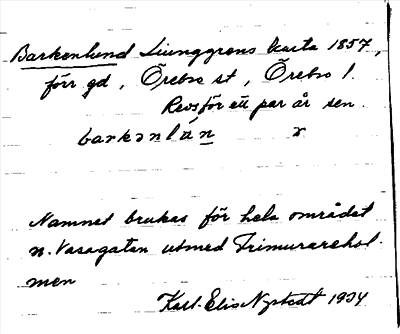 Barkenlund Ljunggrens karta 1857,
förr gd, Örebro st, Örebro l.
Revs för ett par år sen.
barkənlún x
Namnet brukas för hela området
n. Vasagatan utmed Trimurarehol-
men
Karl-Elis Nystedt 1934